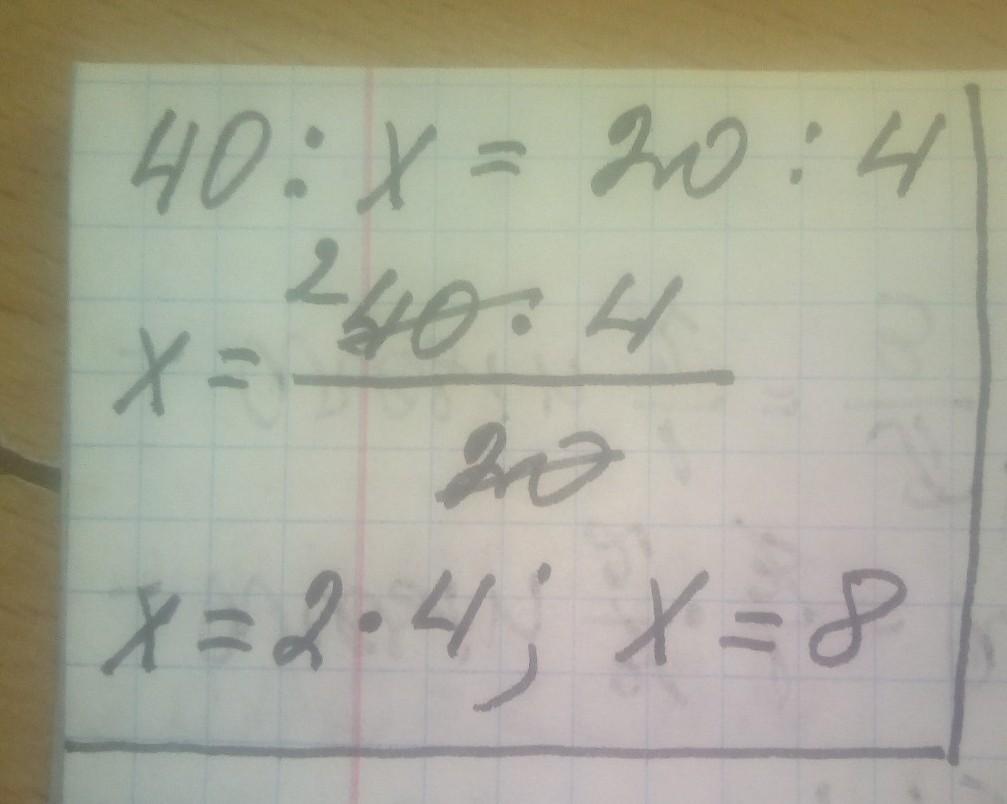 40 : x = 20 : 4
2
x = 40 · 4
20
x = 2 · 4 ; x = 8